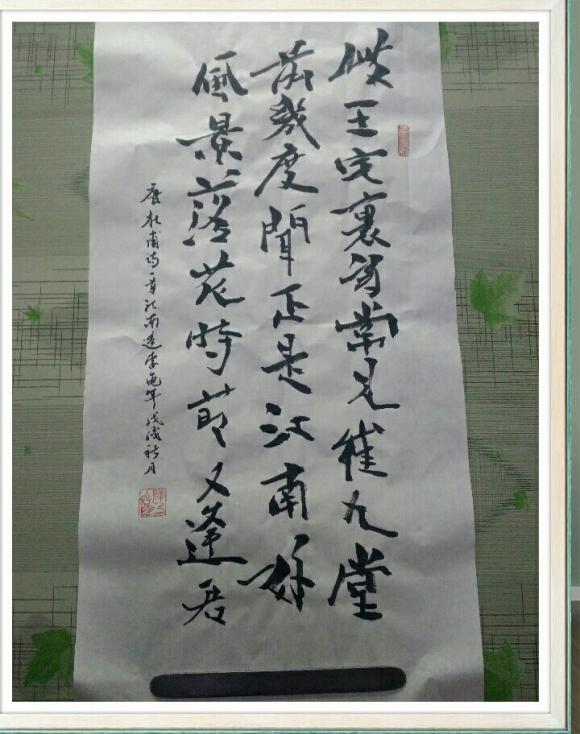 岐王宅裏尋常見崔九堂
前幾度聞正是江南好
風景落花時節又逢君
唐杜甫詩一首江南逢李龜年戊戌秋月